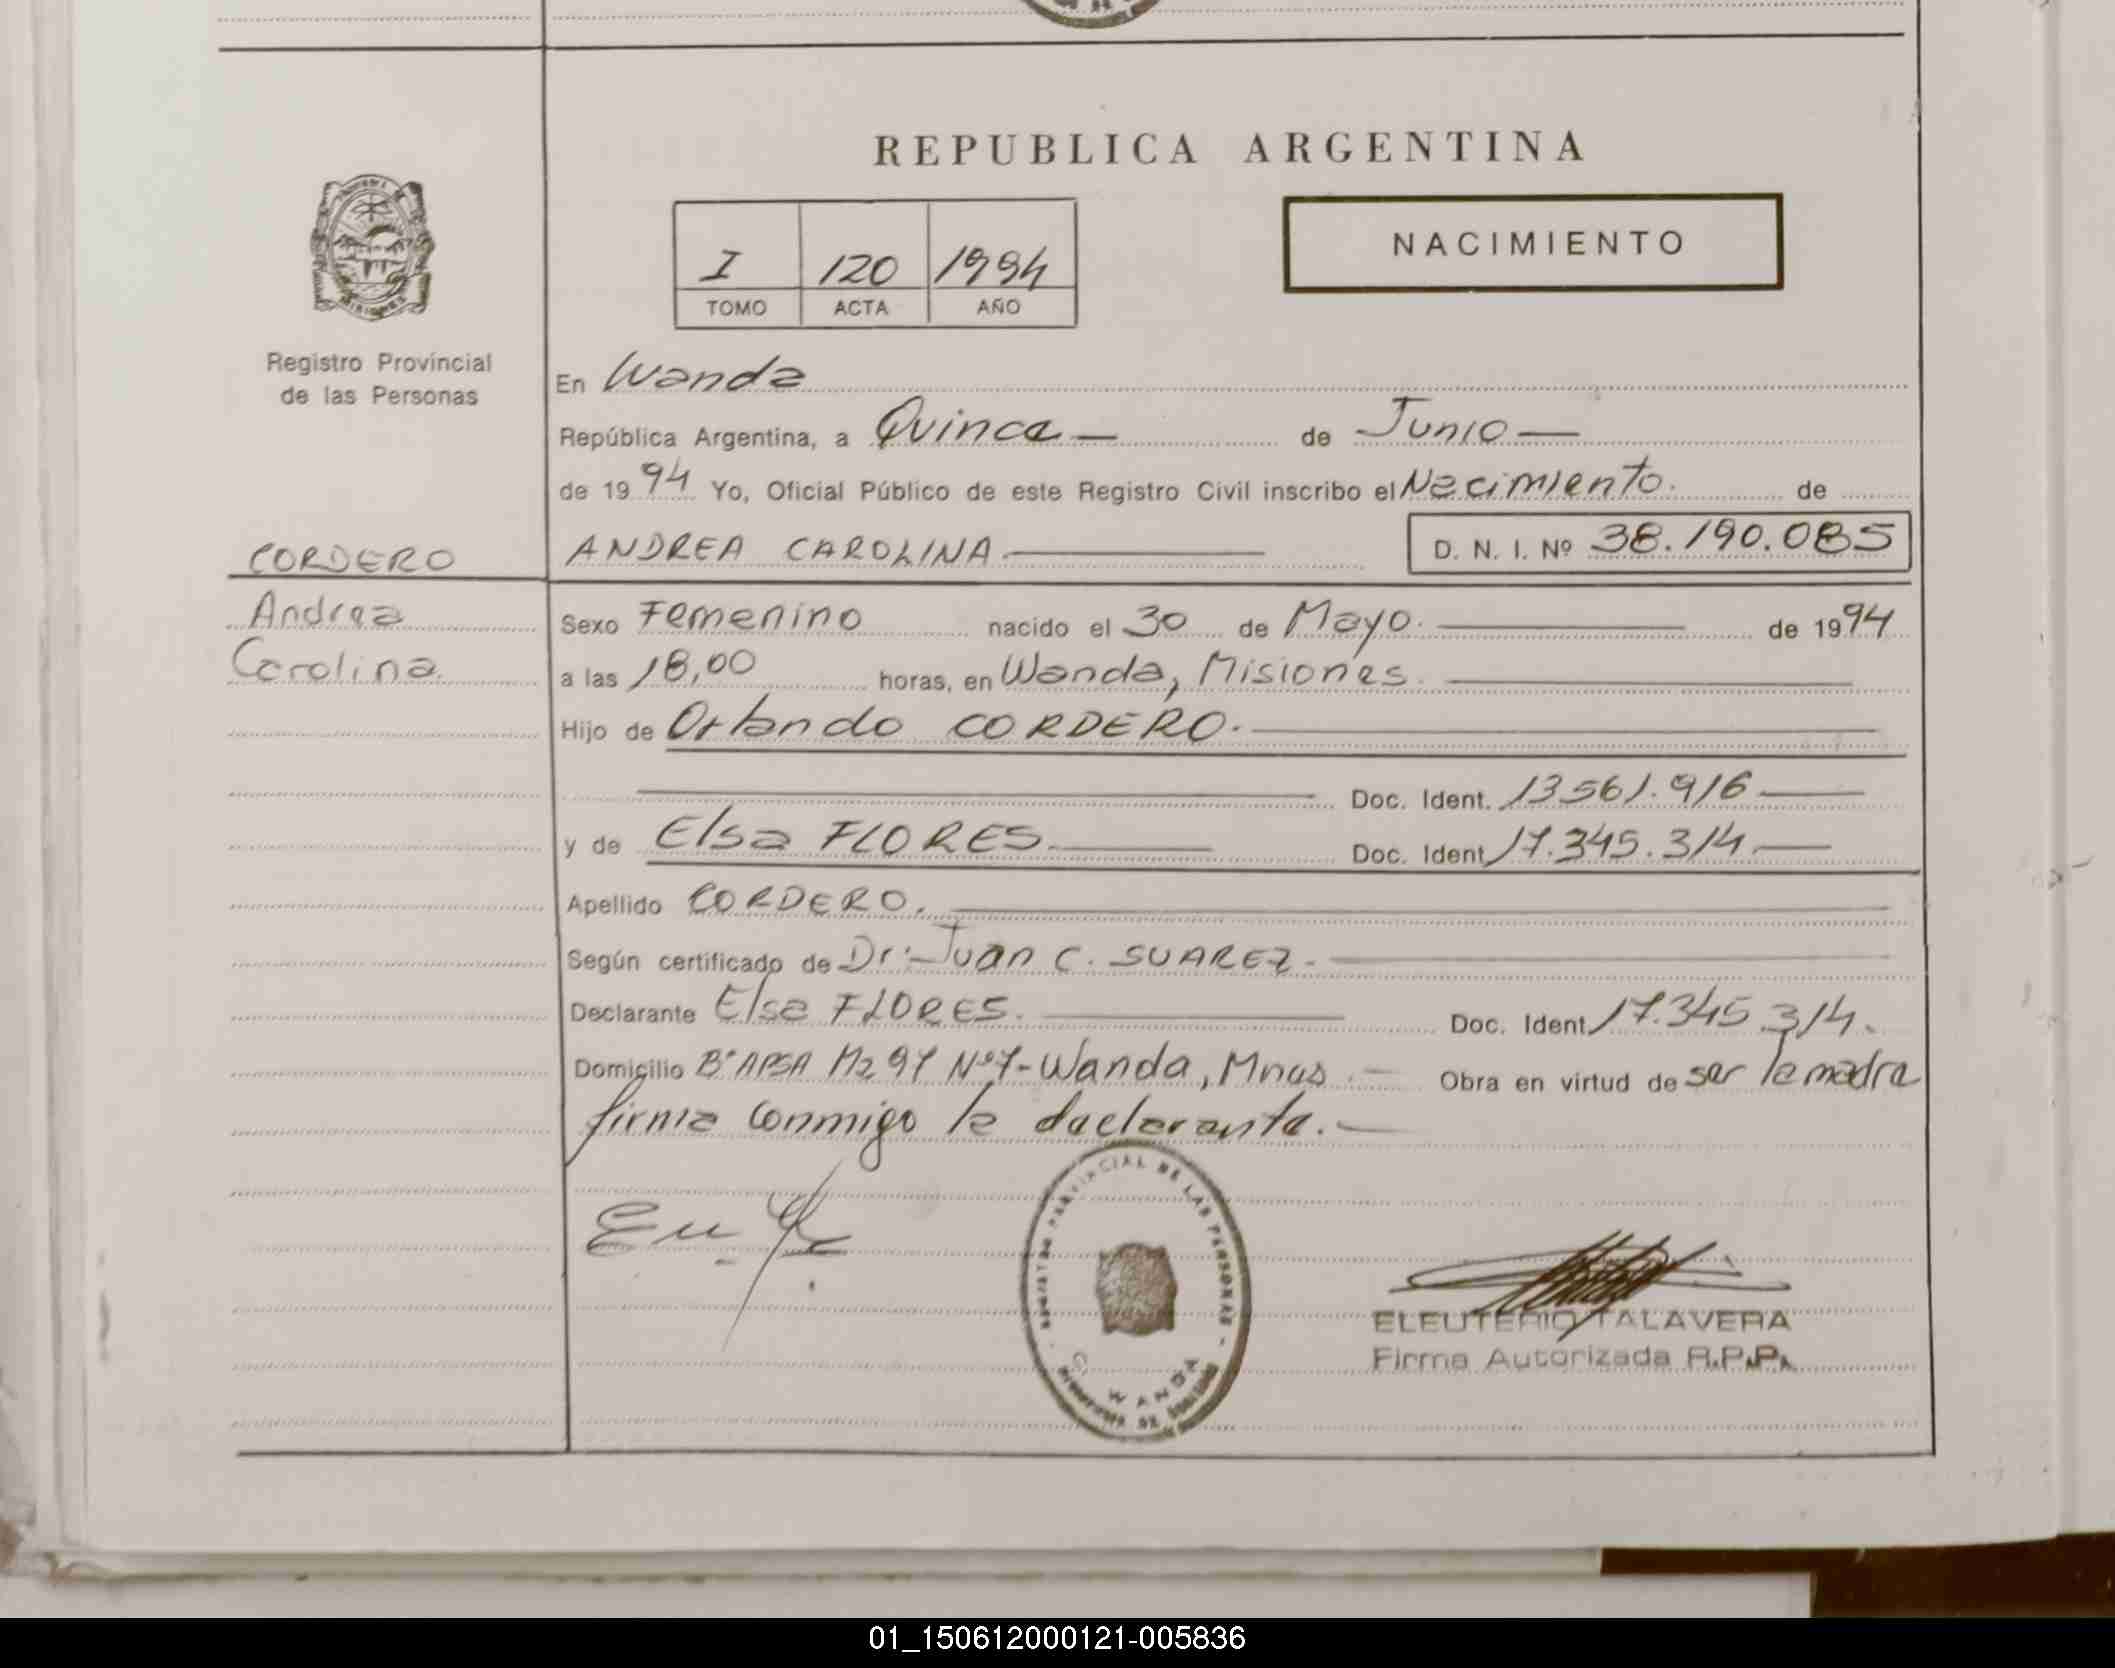 REPUBLICA ARGENTINA
NACIMIENTO
I 120 1994
TOMO ACTA AÑO
Registro Provincial
de las Personas
En Wanda
República Argentina, a Quince — de Junio —
de 1994 Yo, Oficial Público de este Registro Civil inscribo el Nacimiento. de
CORDERO
ANDREA CAROLINA — D. N. I. Nº 38.190.085
Andrea
Carolina
Sexo Femenino nacido el 30 de Mayo. — de 1994
a las 18,00 horas, en Wanda, Misiones. —
Hijo de Orlando CORDERO. —
— Doc. Ident. 13561.916 —
y de Elsa FLORES. — Doc. Ident 17.345.314 —
Apellido CORDERO. —
Según certificado de Dr. Juan C. SUAREZ. —
Declarante Elsa FLORES. — Doc. Ident 17.345.314.
Domicilio Bº APSA Mz 97 Nº 7 - Wanda, Mnes. — Obra en virtud de ser la madre
firma conmigo la declarante. —
REGISTRO PROVINCIAL DE LAS PERSONAS
WANDA
ELEUTERIO TALAVERA
Firma Autorizada R.P.P.
01_150612000121-005836